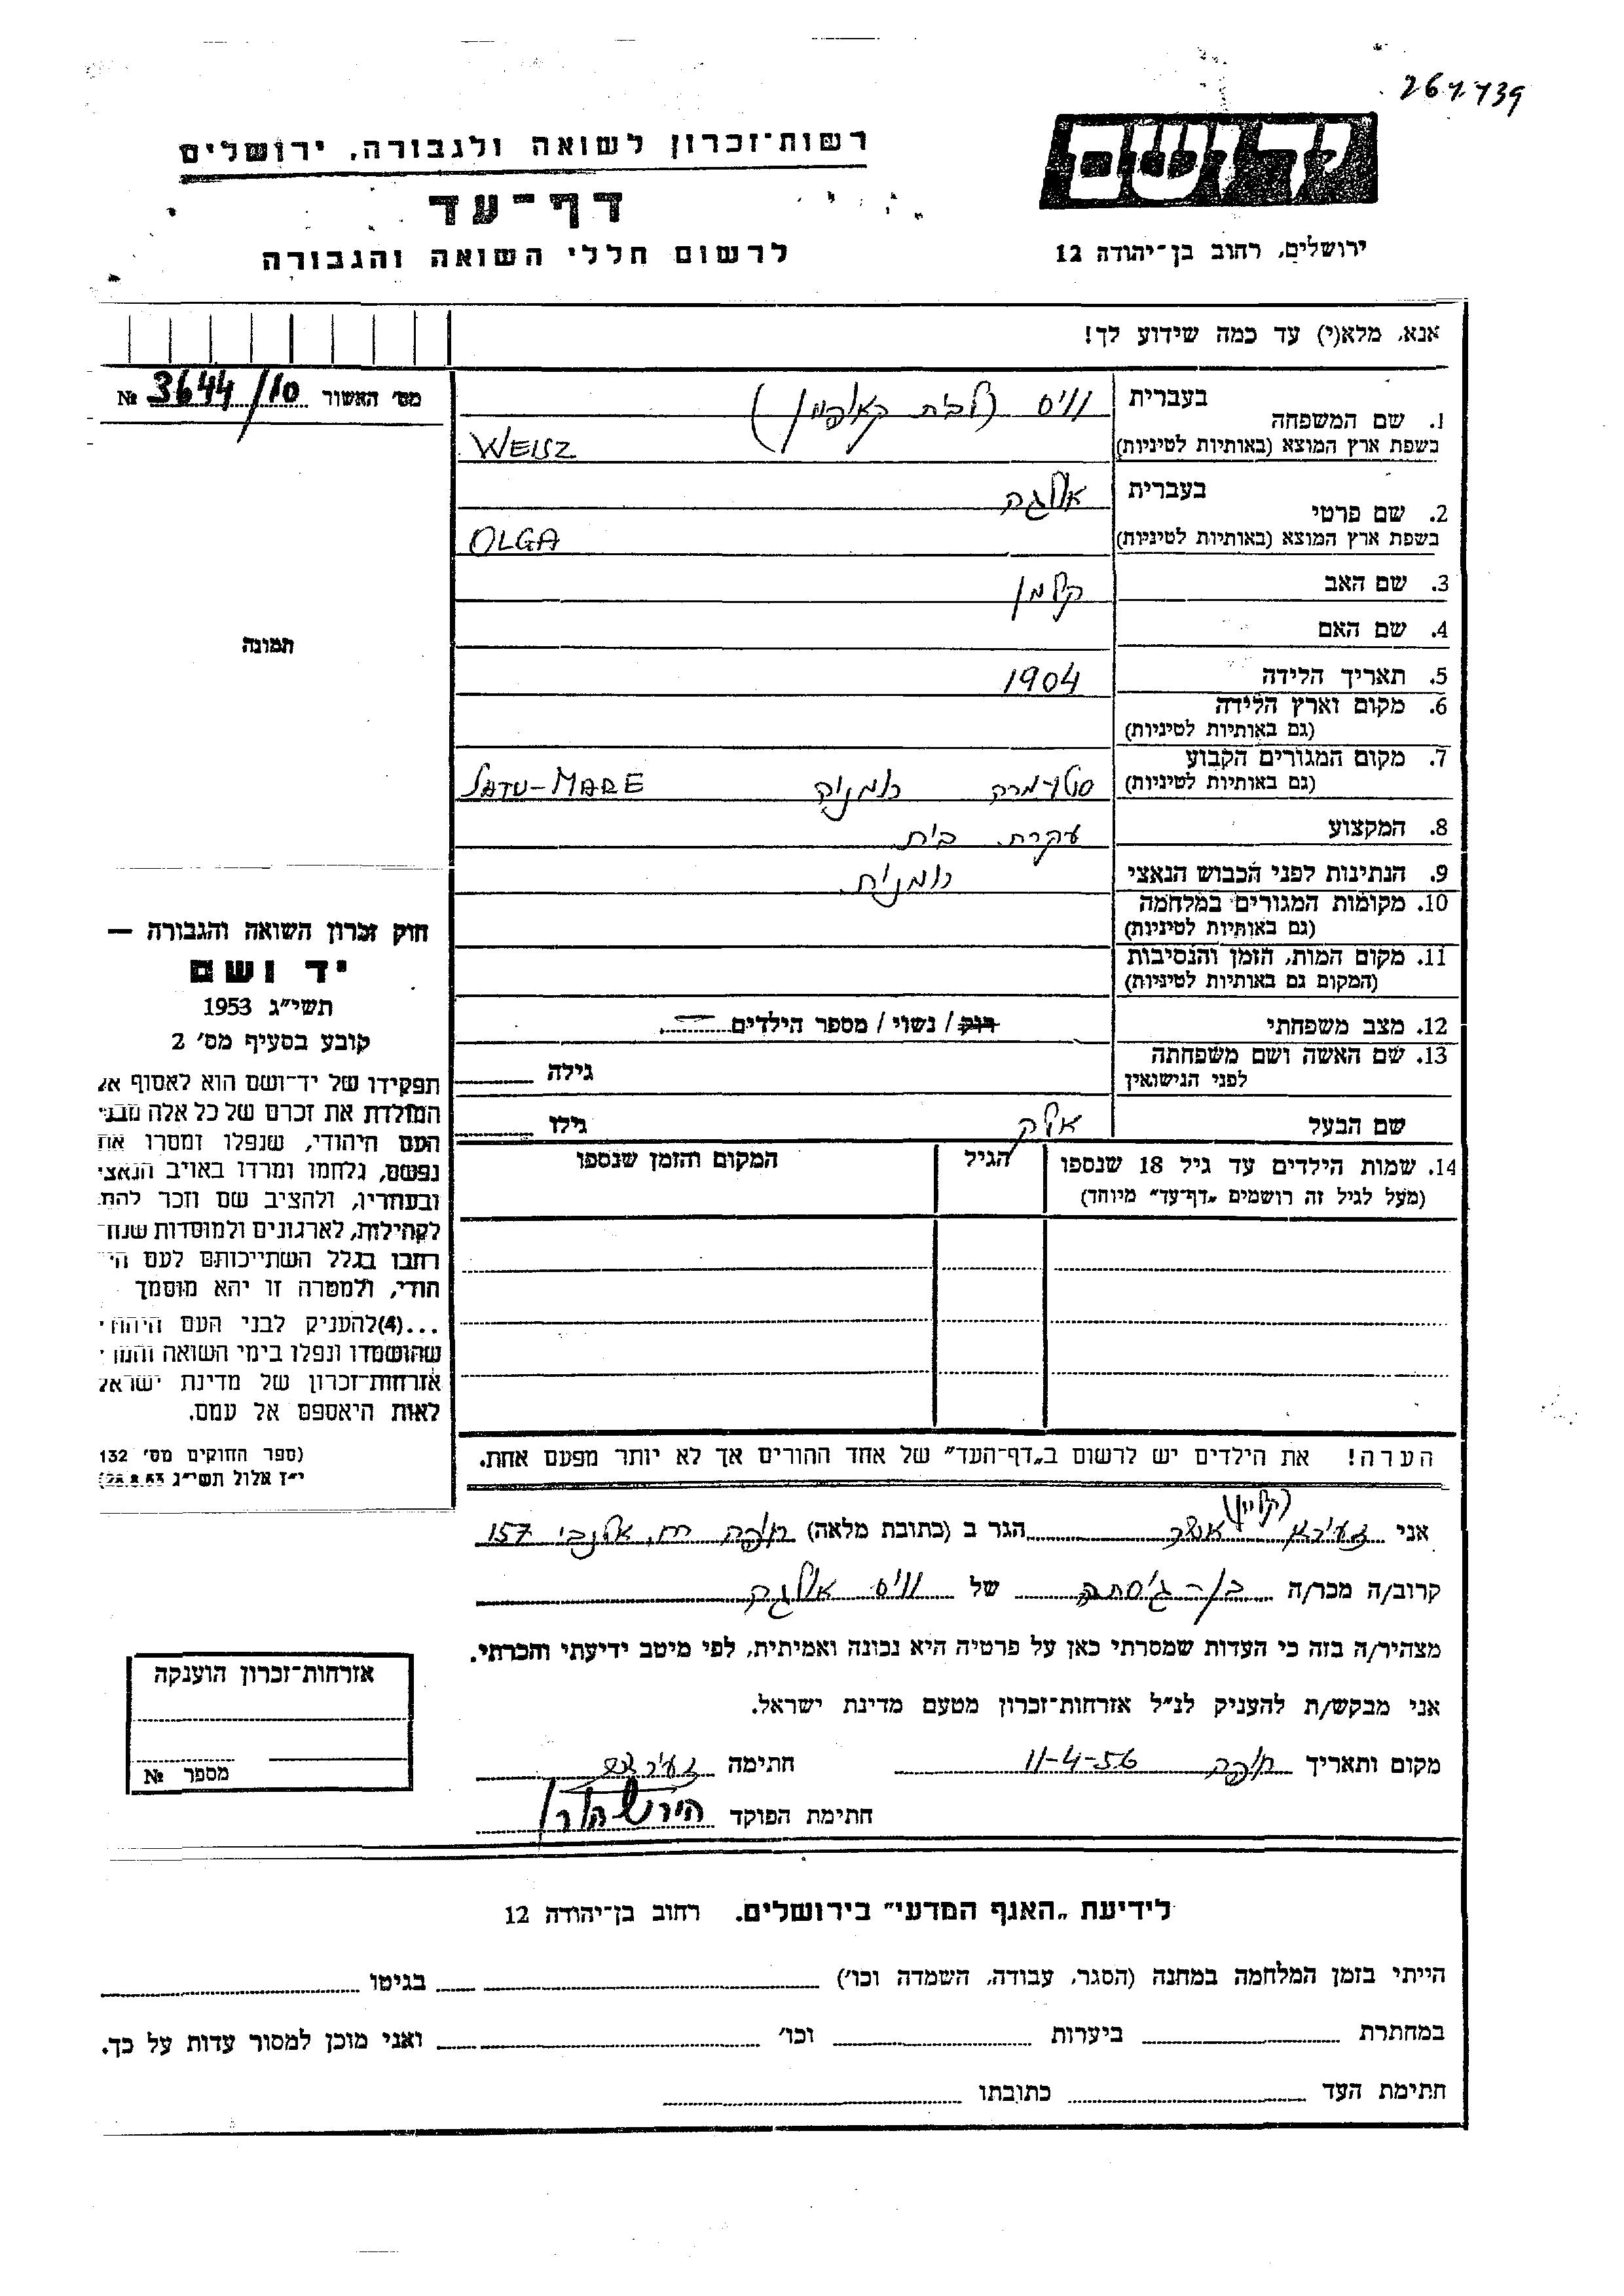 267739
יד ושם
רשות־זכרון לשואה ולגבורה, ירושלים
דף־עד
לרשום חללי השואה והגבורה
ירושלים, רחוב בן־יהודה 12
אנא, מלא(י) עד כמה שידוע לך!
מס׳ האשור 3644/10 №
1. שם המשפחה
בעברית וויס (לבית קאופמן)
בשפת ארץ המוצא (באותיות לטיניות) WEISZ
2. שם פרטי
בעברית אולגה
בשפת ארץ המוצא (באותיות לטיניות) OLGA
3. שם האב קלמן
4. שם האם
תמונה
5. תאריך הלידה 1904
6. מקום וארץ הלידה
(גם באותיות לטיניות)
7. מקום המגורים הקבוע
(גם באותיות לטיניות) סטו-מרה רומניה SATU-MARE
8. המקצוע עקרת בית
9. הנתינות לפני הכבוש הנאצי רומנית
10. מקומות המגורים במלחמה
(גם באותיות לטיניות)
11. מקום המות, הזמן והנסיבות
(המקום גם באותיות לטיניות)
12. מצב משפחתי רווק / נשוי / מספר הילדים
13. שם האשה ושם משפחתה
לפני הנישואין גילה
שם הבעל גילו
14. שמות הילדים עד גיל 18 שנספו
(מעל לגיל זה רושמים „דף־עד” מיוחד)
הגיל
המקום והזמן שנספו
חוק זכרון השואה והגבורה —
יד ושם
תשי״ג 1953
קובע בסעיף מס׳ 2
תפקידו של יד־ושם הוא לאסוף אל
המולדת את זכרם של כל אלה מבני
העם היהודי, שנפלו ומסרו את
נפשם, נלחמו ומרדו באויב הנאצי
ובעוזריו, ולהציב שם וזכר להם,
לקהילות, לארגונים ולמוסדות שנח־
רבו בגלל השתייכותם לעם הי־
הודי, ולמטרה זו יהא מוסמך
...(4)להעניק לבני העם היהודי
שהושמדו ונפלו בימי השואה והמרי
אזרחות־זכרון של מדינת ישראל
לאות היאספם אל עמם.
(ספר החוקים מס׳ 132
י״ז אלול תשי״ג 28.8.53)
הערה! את הילדים יש לרשום ב„דף־העד” של אחד ההורים אך לא יותר מפעם אחת.
(קליין)
אני זעירא אשר הגר ב (כתובת מלאה) חיפה רח, אלנבי 157
קרוב/ה מכר/ה בן-גיסתה של וויס אולגה
מצהיר/ה בזה כי העדות שמסרתי כאן על פרטיה היא נכונה ואמיתית, לפי מיטב ידיעתי והכרתי.
אני מבקש/ת להעניק לנ״ל אזרחות־זכרון מטעם מדינת ישראל.
מקום ותאריך חיפה 11-4-56 חתימה
חתימת הפוקד
אזרחות־זכרון הוענקה
מספר №
לידיעת „האגף המדעי” בירושלים. רחוב בן־יהודה 12
הייתי בזמן המלחמה במחנה (הסגר, עבודה, השמדה וכו׳) בגיטו
במחתרת ביערות וכו׳ ואני מוכן למסור עדות על כך.
חתימת העד כתובתו